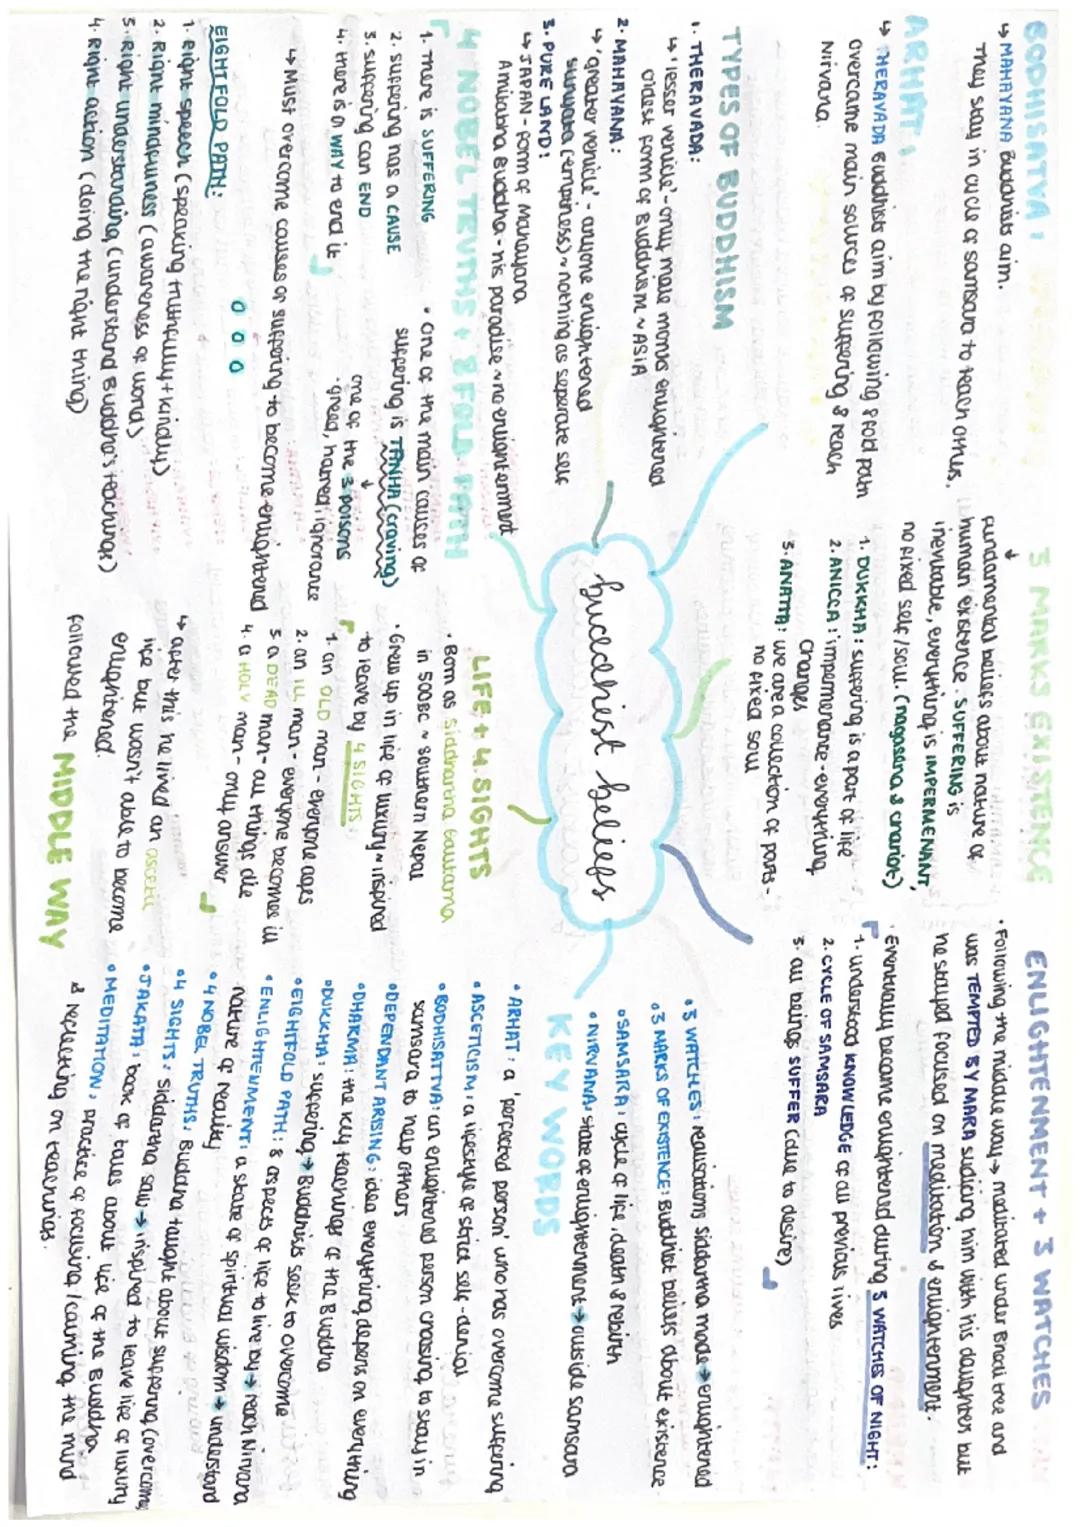 BODHISATVA:
↳ MAHAYANA Buddhists aim.
They stay in cycle of samsara to teach others.
ARHAT:
↳ THERAVADA Buddhists aim by following 8 fold path
overcame main sources of suffering & reach
Nirvana.
TYPES OF BUDDHISM
1. THERAVADA:
↳ 'lesser vehicle' - only male monks enlightened
oldest form of Buddhism ~ ASIA
2. MAHAYANA:
↳ 'greater vehicle' - anyone enlightened
sunyata (emptiness) ~ nothing as seperate self
3. PURE LAND:
↳ JAPAN - form of Mahayana
Amitabha Buddha - his paradise ~ no enlightenment
4 NOBEL TRUTHS + 8 FOLD PATH
1. There is SUFFERING
2. suffering has a CAUSE
3. suffering can END
4. there is a WAY to end it
• One of the main causes of
suffering is TANHA (craving)
one of the 3 poisons
• greed, hatred, ignorance
↳ Must overcome causes of suffering to become enlightened
EIGHTFOLD PATH:
1. Right speech (speaking truthfully + kindly)
2. Right mindfullness (awareness of world)
3. Right understanding (understand Buddha's teachings)
4. Right action (doing the right thing)
3 MARKS EXISTENCE
fundamental beliefs about nature of
human existence. SUFFERING is
inevitable, everything is IMPERMENANT
no fixed self/soul. (nagasena & chariot)
1. DUKKHA: suffering is a part of life
2. ANICCA: impermenance - everything
changes
3. ANATTA: we are a collection of parts -
no fixed soul
buddhist beliefs
LIFE + 4 SIGHTS
• Born as Siddhartha Gautama
in 500BC ~ southern Nepal
• Grew up in life of luxury ~ inspired
to leave by 4 SIGHTS:
1. an OLD man - everyone ages
2. an ILL man - everyone becomes ill
3. a DEAD man - all things die
4. a HOLY man - only answer
↳ after this, he lived an ascetic
life but wasn't able to become
enlightened.
followed the MIDDLE WAY
ENLIGHTENMENT + 3 WATCHES
• Following the middle way → meditated under Bhodi tree and
was TEMPTED BY MARA sudjing him with his daughters but
he stayed focused on meditation & enlightenment.
• Eventually became enlightend during 3 WATCHES OF NIGHT:
1. understood KNOWLEDGE of all previous lives
2. CYCLE OF SAMSARA
3. all beings SUFFER (due to desire)
• 3 WATCHES: realisations siddartha made → enlightened
• 3 MARKS OF EXISTENCE: Buddhist beliefs about existence
• SAMSARA: cycle of life, death & rebirth
• NIRVANA: state of enlightenment → outside samsara
KEY WORDS
• ARHAT: a 'perfected person' who has overcome suffering
• ASCETICISM: a lifestyle of strict self-denial
• BODHISATTVA: an enlightened person choosing to stay in
samsara to help others
• DEPENDANT ARISING: idea everything depends on everything
• DHARMA: the key teachings of the Buddha
• DUKKHA: suffering → Buddhists seek to overcome
• EIGHTFOLD PATH: 8 aspects of life to live by → reach Nirvana
• ENLIGHTENMENT: a state of spiritual wisdom → understand
nature of reality
• 4 NOBEL TRUTHS: Buddha taught about suffering (overcome)
• 4 SIGHTS: Siddartha saw → inspired to leave life of luxury
• JAKATA: book of tales about life of the Buddha
• MEDITATION: practice of focusing/calming the mind
& reflecting on teachings.